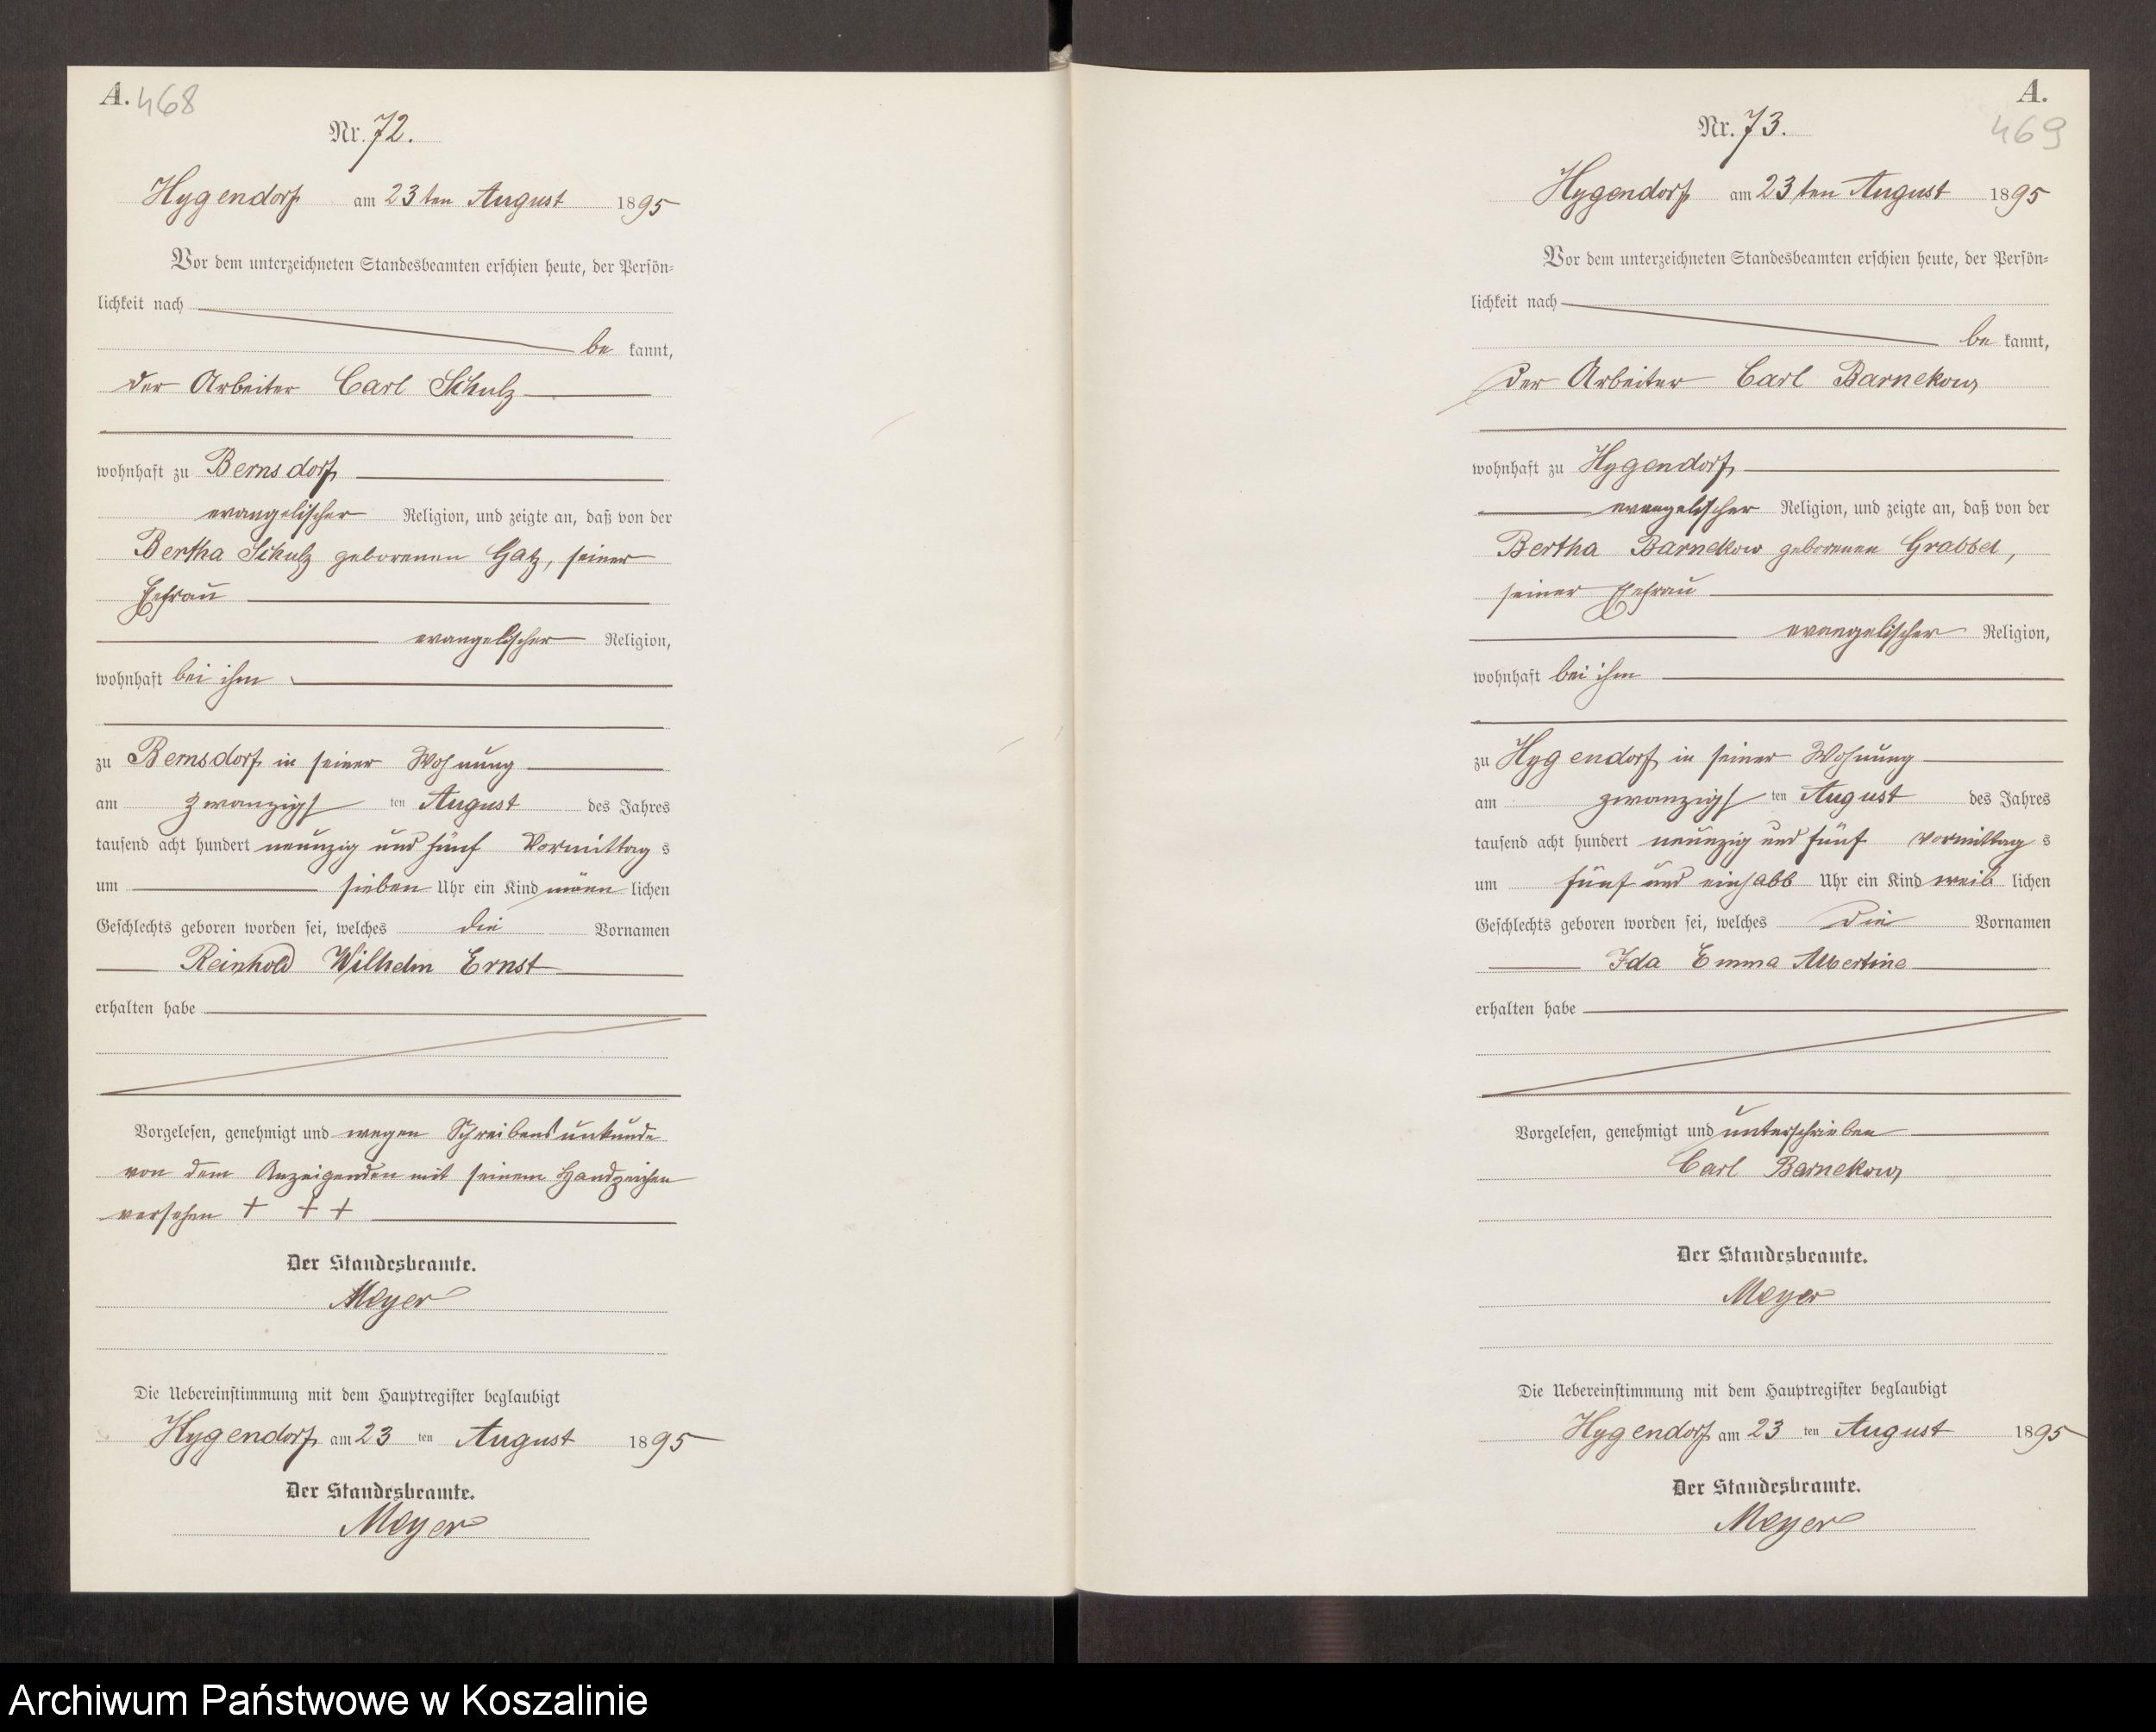 A. 468
Nr. 72.
Hygendorf am 23ten August 1895
Vor dem unterzeichneten Standesbeamten erschien heute, der Persön-
lichkeit nach
be kannt,
der Arbeiter Carl Schulz
wohnhaft zu Bernsdorf
evangelischer Religion, und zeigte an, daß von der
Bertha Schulz geborenen Gatz, seiner
Ehefrau
evangelischer Religion,
wohnhaft bei ihm
zu Bernsdorf in seiner Wohnung
am zwanzigsten August des Jahres
tausend acht hundert neunzig und fünf Vormittags
um sieben Uhr ein Kind männlichen
Geschlechts geboren worden sei, welches die Vornamen
Reinhold Wilhelm Ernst
erhalten habe
Vorgelesen, genehmigt und wegen Schreibensunkunde
von dem Anzeigenden mit seinem Handzeichen
versehen + + +
Der Standesbeamte.
Meyer
Die Uebereinstimmung mit dem Hauptregister beglaubigt
Hygendorf am 23 ten August 1895
Der Standesbeamte.
Meyer
A.
469
Nr. 73.
Hygendorf am 23ten August 1895
Vor dem unterzeichneten Standesbeamten erschien heute, der Persön-
lichkeit nach
be kannt,
der Arbeiter Carl Barnekow
wohnhaft zu Hygendorf
evangelischer Religion, und zeigte an, daß von der
Bertha Barnekow geborenen Grabbel,
seiner Ehefrau
evangelischer Religion,
wohnhaft bei ihm
zu Hygendorf in seiner Wohnung
am zwanzigsten August des Jahres
tausend acht hundert neunzig und fünf Vormittags
um fünf und einhalb Uhr ein Kind weiblichen
Geschlechts geboren worden sei, welches die Vornamen
Ida Emma Albertine
erhalten habe
Vorgelesen, genehmigt und unterschrieben
Carl Barnekow
Der Standesbeamte.
Meyer
Die Uebereinstimmung mit dem Hauptregister beglaubigt
Hygendorf am 23 ten August 1895
Der Standesbeamte.
Meyer
Archiwum Państwowe w Koszalinie